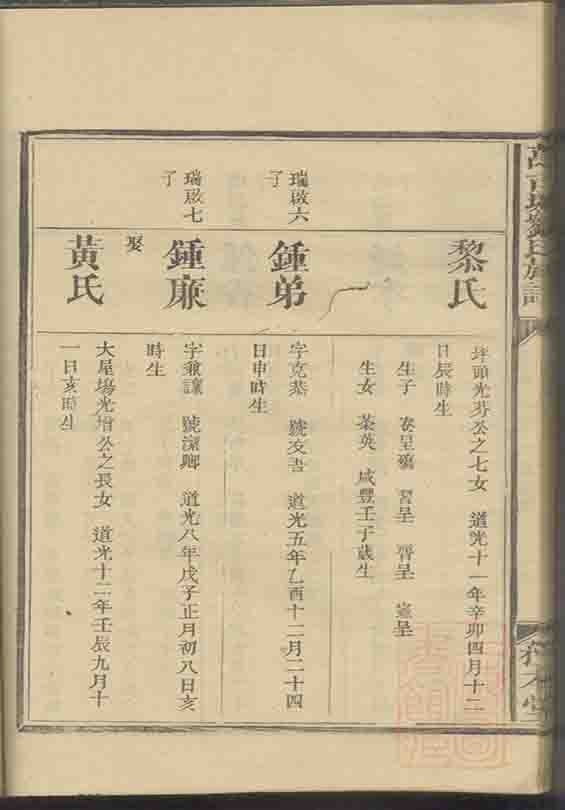 黎氏
坪頭光芬公之七女 道光十一年辛卯四月十二
日辰時生
生子 習呈 呈
生女 英 咸豐壬子歲生
瑞啟六
了
鍾弟
字克恭 號友吾 道光五年乙酉十二月二十四
日申時生
瑞啟七
了
鍾廉
字兼讓 號潔卿 道光八年戊子正月初八日亥
時生
娶
黃氏
大屋場光增公之長女 道光十二年壬辰九月十
一日亥時生
氏族譜